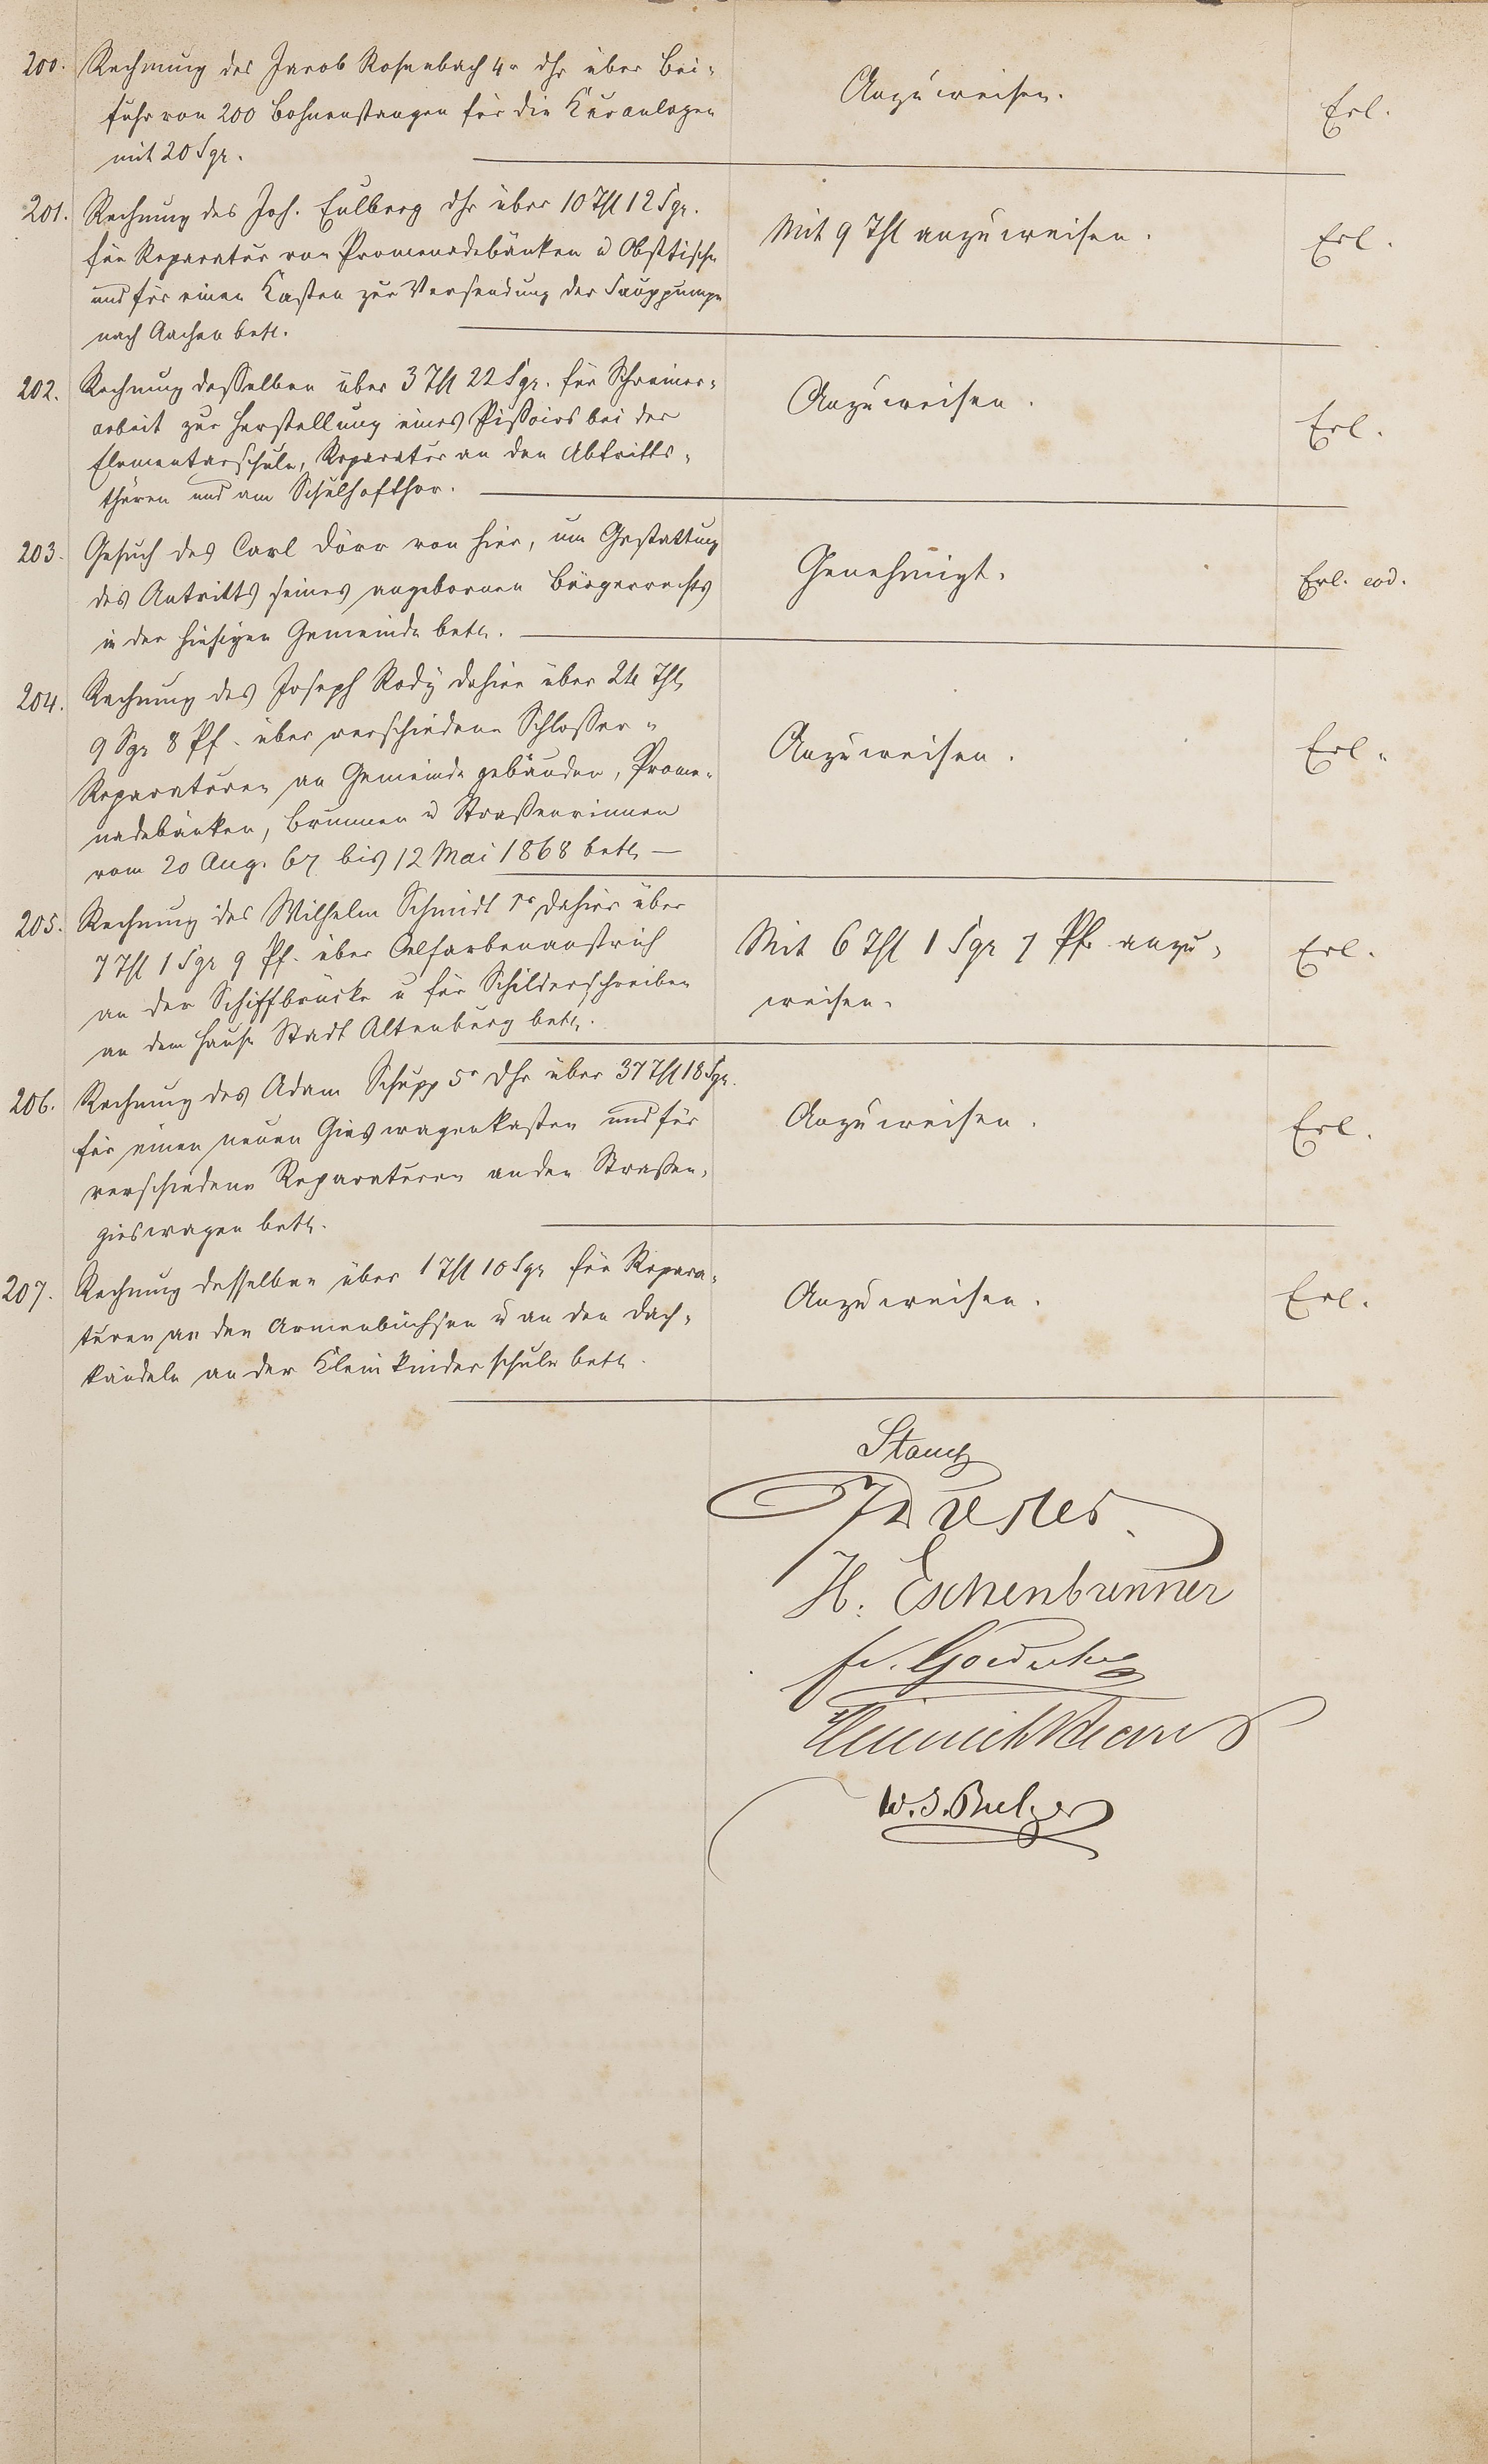 200. Rechnung des Jacob Rosenbach 4r dhr über Bei-
fuhr von 200 Bohnenstangen für die Kuranlagen
mit 20 Sgr.
Anzuweisen.
Erl.
201. Rechnung des Joh. Eulberg dhr über 10 Thl 12 Sgr.
für Reparatur von Promenadebänken u Obsttische
und für einen Kasten zur Versendung der Saugpumpe
nach Aachen betr.
Mit 9 Thl anzuweisen.
Erl.
202. Rechnung desselben über 3 Thl 22 Sgr. für Schreiner-
arbeit zur Herstellung eines Pissoirs bei der
Elementarschule, Reparatur an den Abtritts-
thüren und am Schulhofthor.
Anzuweisen.
Erl.
203. Gesuch des Carl Dörr von hier, um Gestattung
des Antritts seines angebornen Bürgerrechts
in der hiesigen Gemeinde betr.
Genehmigt.
Erl. eod.
204. Rechnung des Joseph Rody dahier über 24 Thl
9 Sgr 8 Pf. über verschiedene Schlosser-
Reparaturen an Gemeindegebäuden, Prome-
nadebänken, Brunnen u Straßenrinnen
vom 20 Aug. 67 bis 12 Mai 1868 betr
Anzuweisen.
Erl.
205. Rechnung des Wilhelm Schmidt 1r dahier über
7 Thl 1 Sgr 9 Pf. über Oelfarbenanstrich
an der Schiffbrücke u für Schilderschreiben
an dem Hause Stadt Altenburg betr.
Mit 6 Thl 1 Sgr 7 Pf. anzu-
weisen.
Erl.
206. Rechnung des Adam Schupp 5r dhr über 37 Thl 18 Sgr.
für einen neuen Gieswagenkasten und für
verschiedene Reparaturen an den Straßen-
gieswagen betr.
Anzuweisen.
Erl.
207. Rechnung desselben über 1 Thl 10 Sgr für Repara-
turen an den Armenbüchsen u an den Dach-
kändeln an der Kleinkinderschule betr.
Anzuweisen.
Erl.
H. Eschenbrenner
Heinrich
W. J. Balzer